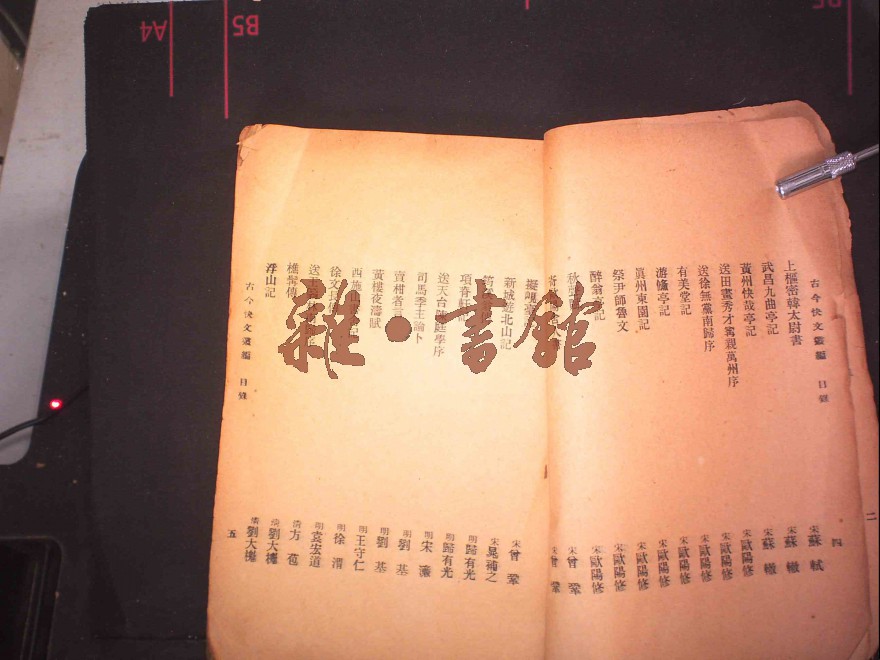 A4
B5
古今快文選編 目錄
四
上樞密韓太尉書 宋蘇轍
武昌九曲亭記 宋蘇轍
黃州快哉亭記 宋蘇轍
送田畫秀才寧親萬州序 宋歐陽修
送徐無黨南歸序 宋歐陽修
有美堂記 宋歐陽修
游鯈亭記 宋歐陽修
真州東園記 宋歐陽修
祭尹師魯文 宋歐陽修
醉翁亭記 宋歐陽修
秋 宋歐陽修
宋曾鞏
擬 宋曾鞏
新城遊北山記 宋晁補之
明歸有光
項脊軒 明歸有光
送天台陳庭學序 明宋濂
司馬季主論卜 明劉基
賣柑者言 明劉基
黃樓夜濤賦 明王守仁
西施山 明徐渭
徐文長 明袁宏道
送 清方苞
樵髯傳 清劉大櫆
浮山記 清劉大櫆
古今快文選編 目錄
五
雜·書館